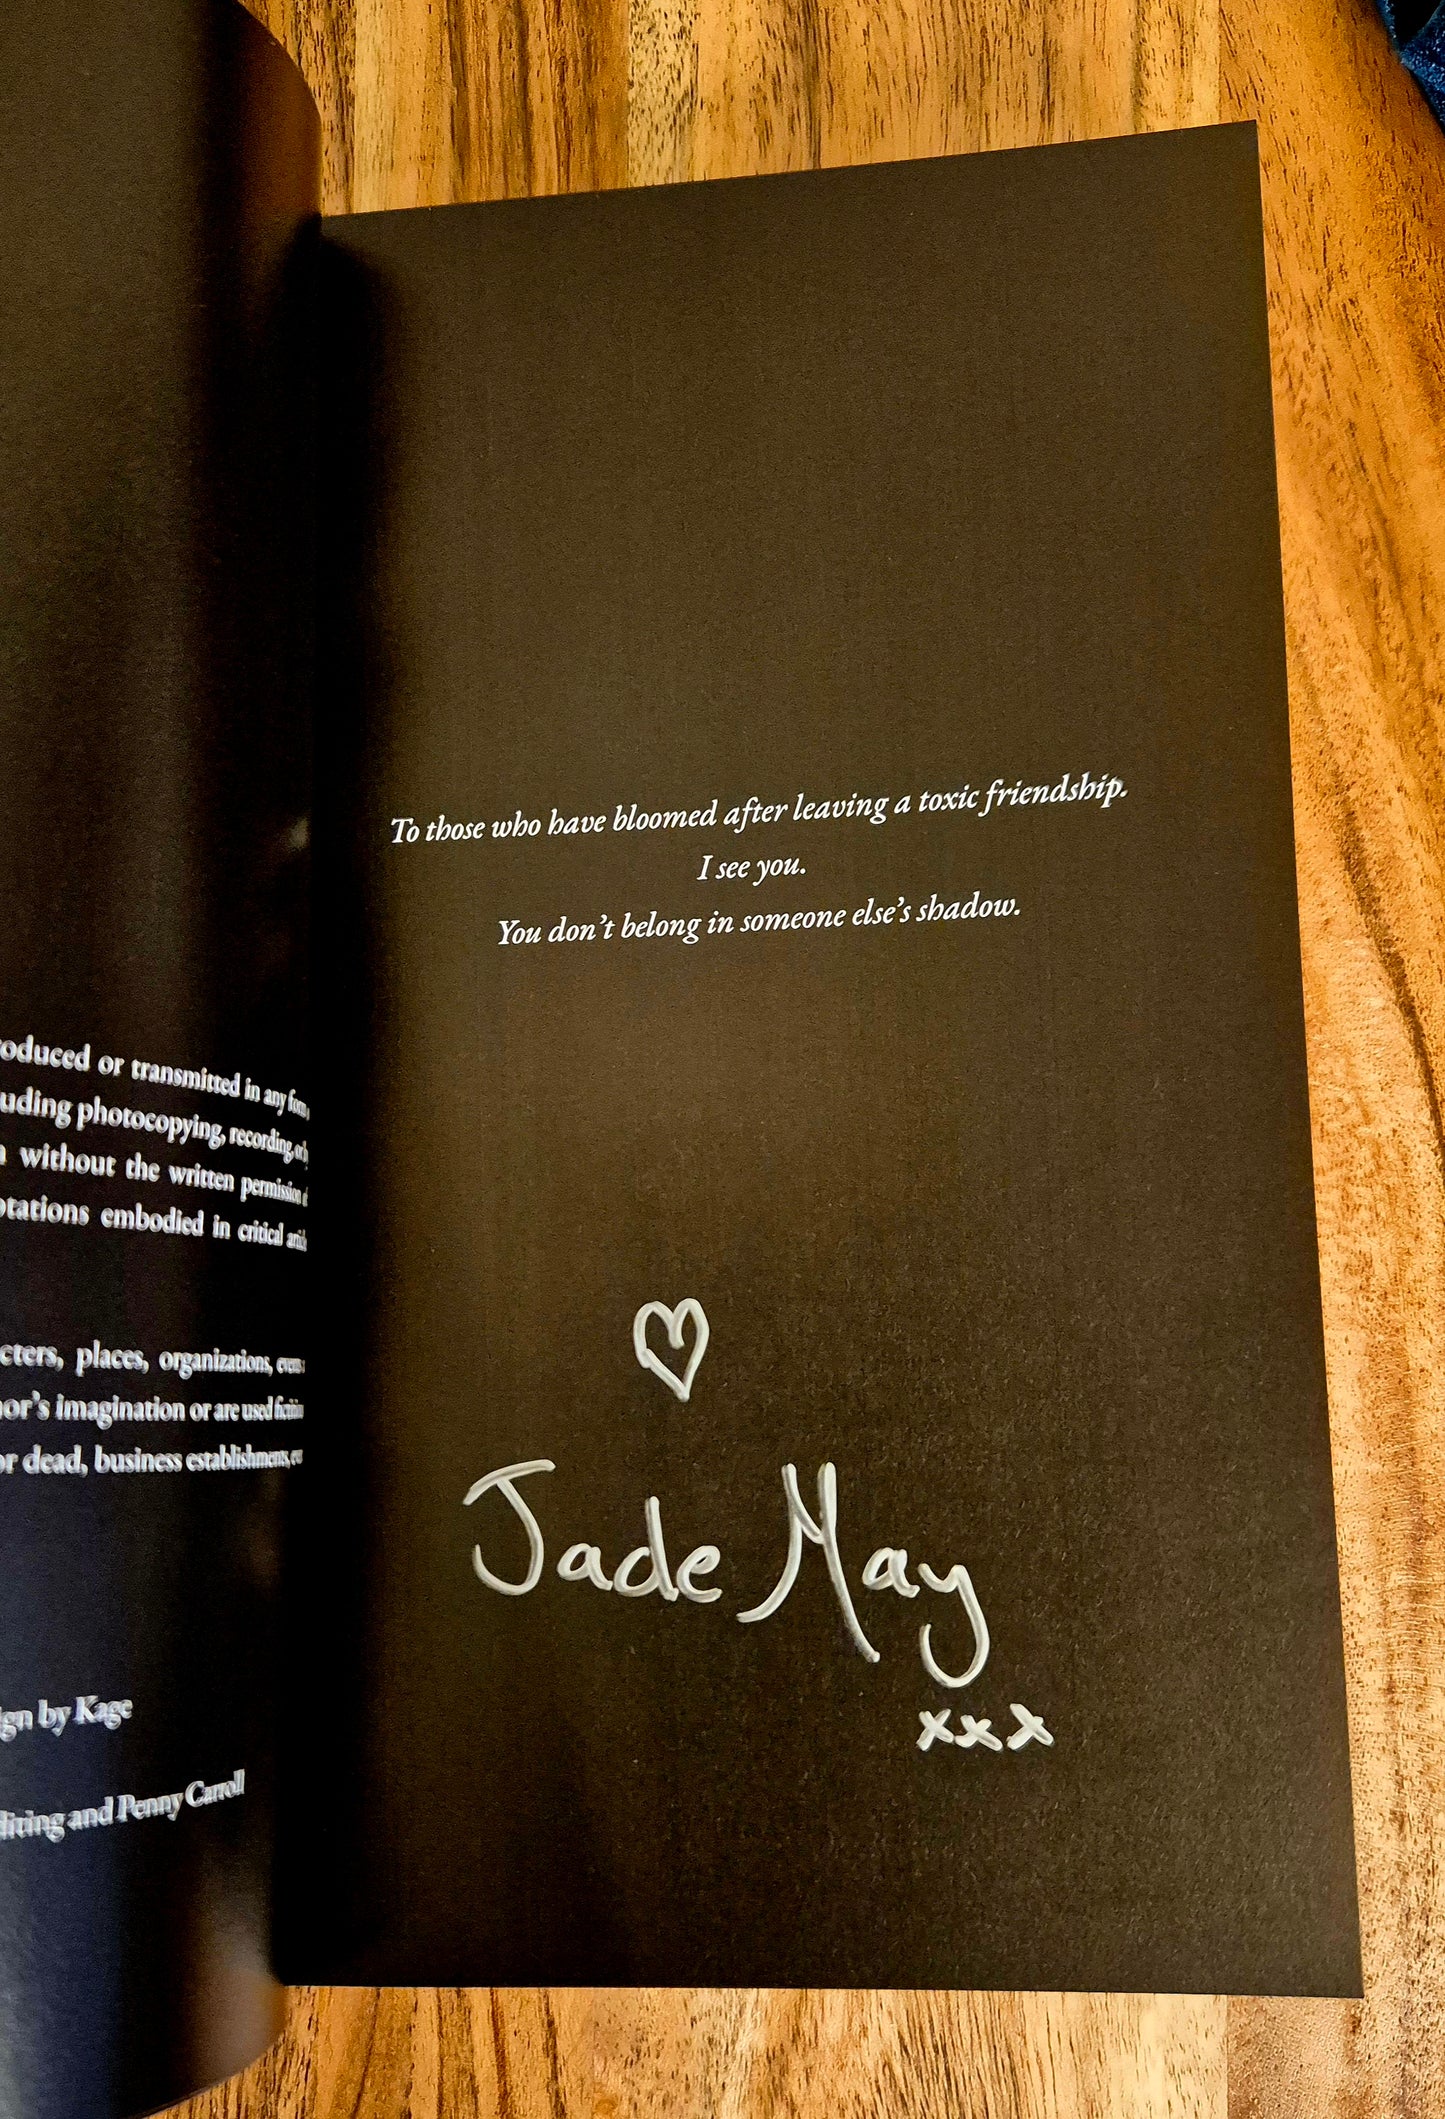 oduced or transmitted in any form,
uding photocopying, recording, or by
without the written permission of
otations embodied in critical
cters, places, organizations, events
or's imagination or are used
or dead, business establishments,
gn by Kage
diting and Penny Carroll
To those who have bloomed after leaving a toxic friendship.
I see you.
You don't belong in someone else's shadow.
Jade May
xxx